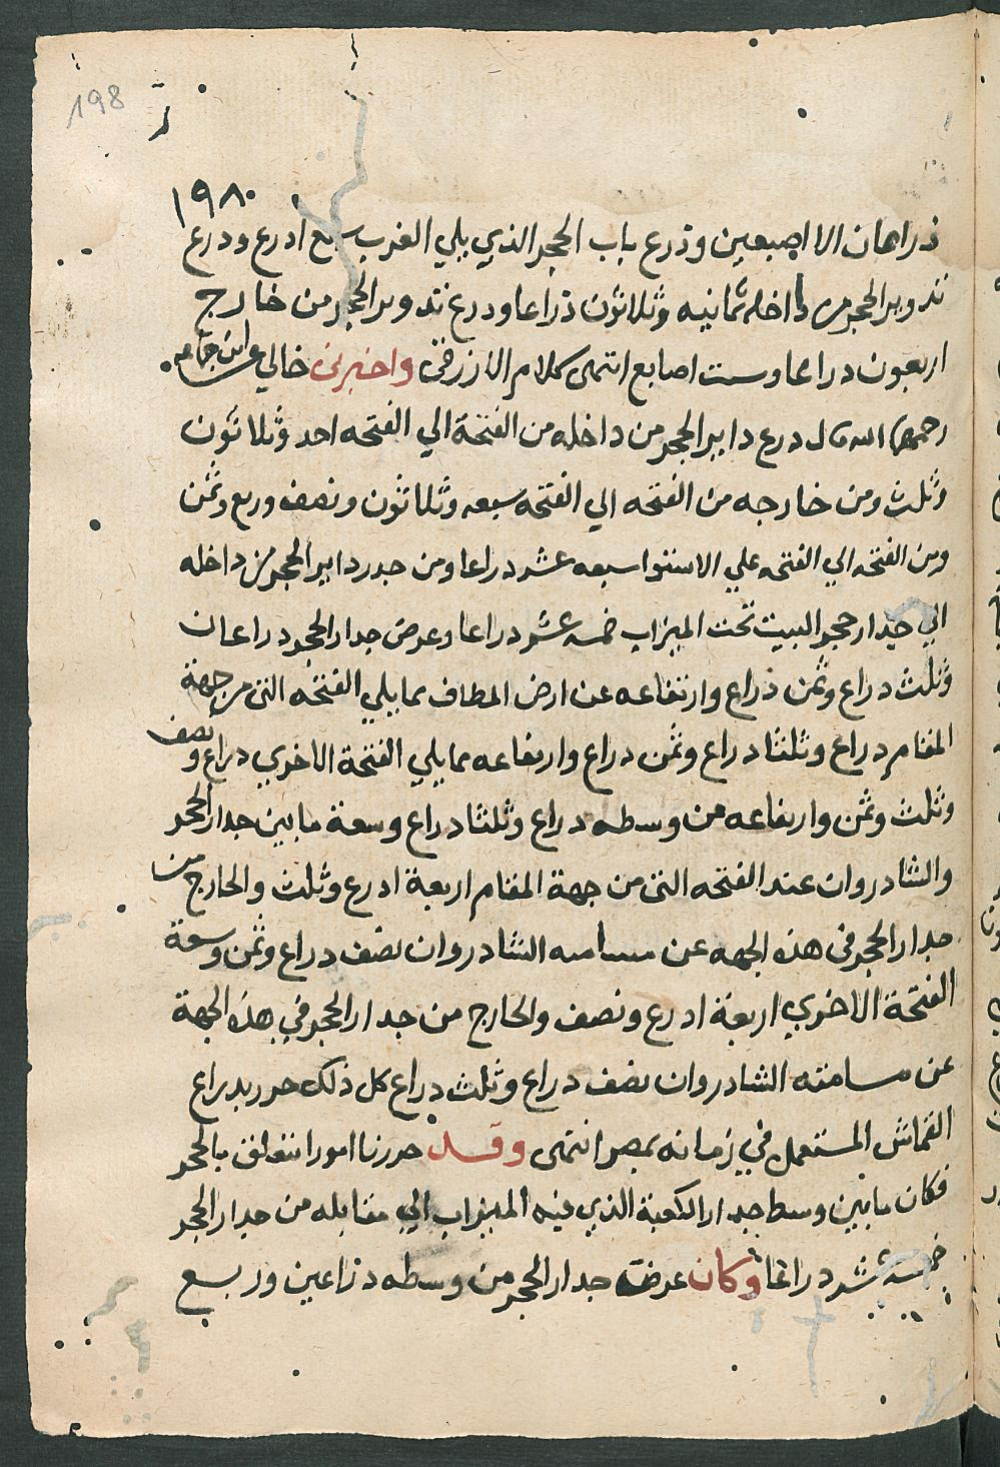 198
١٩٨٠
ذراعان الا اصبعين وذرع باب الحجر الذي يلي الغرب سبع ادرع ودرع
تدوير الحجر من داخله ثمانيه وثلاثون ذراعا ودرع تدوير الحجر من خارج
اربعون دراعا وست اصابع انتهى كلام الازرقى واخبرنى خالي عن ابن جماعه
رحمهما الله قال درع داير الحجر من داخله من الفتحة الي الفتحه احد وثلاثون
وثلث ومن خارجه من الفتحه الي الفتحه سبعه وثلاثون ونصف وربع وثمن
ومن الفتحه الي الفتحه علي الاستوا سبعه عشر دراعا ومن صدر داير الحجر من داخله
الي جدار حجر البيت تحت الميزاب خمسه عشر دراعا وعرض جدار الحجر دراعان
وثلث دراع وثمن ذراع وارتفاعه عن ارض المطاف مما يلي الفتحه التى من جهة
المقام دراع وثلثا دراع وثمن دراع وارتفاعه مما يلي الفتحة الاخري دراع ونصف
وثلث وثمن وارتفاعه من وسطه دراع وثلثا دراع وسعة ما بين جدار الحجر
والشادروان عند الفتحه التى من جهة المقام اربعة ادرع وثلث والخارج من
جدار الحجر فى هذه الجهه عن مسامته الشادروان نصف دراع وثمن وسعة
الفتحة الاخري اربعة ادرع ونصف والخارج من جدار الحجر في هذه الجهة
عن مسامته الشادروان نصف دراع وثلث دراع كل ذلك حرر بدراع
القماش المستعمل في زمانه بمصر انتهى وقد حررنا امورا تتعلق بالحجر
فكان ما بين وسط جدار الكعبة الذي فيه الميزاب الي مقابله من جدار الحجر
خمسة عشر دراعا وكان عرض جدار الحجر من وسطه دراعين وربع